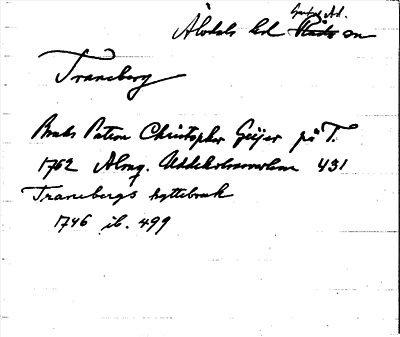 Älvdals hd Gustaf Ad. sn
Traneberg
Bruks Patron Christopher Geijer på T.
1762 Almq. Uddeholmsverken 431
Tranebergs hyttebruk
1746 ib. 499